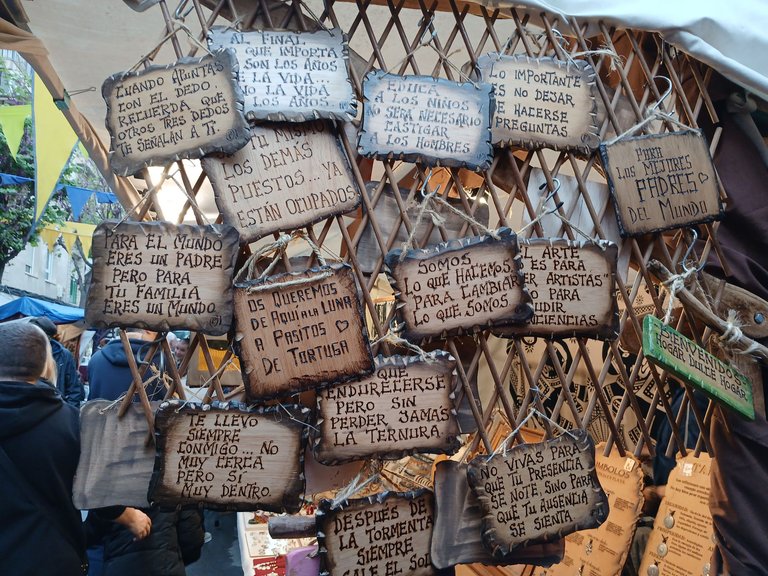 AL FINAL
LO QUE IMPORTA
NO SON LOS AÑOS
DE LA VIDA...
SINO LA VIDA
DE LOS AÑOS.
CUANDO APUNTAS
CON EL DEDO
RECUERDA QUE
OTROS TRES DEDOS
TE SEÑALAN A TI.
EDUCA
A LOS NIÑOS
Y NO SERÁ NECESARIO
CASTIGAR
A LOS HOMBRES
LO IMPORTANTE
ES NO DEJAR
DE HACERSE
PREGUNTAS
TU MISMO
LOS DEMÁS
PUESTOS... YA
ESTÁN OCUPADOS
PARA
LOS MEJORES
PADRES
DEL MUNDO
PARA EL MUNDO
ERES UN PADRE
PERO PARA
TU FAMILIA
ERES UN MUNDO
OS QUEREMOS
DE AQUÍ A LA LUNA
A PASITOS
DE TORTUGA
SOMOS
LO QUE HACEMOS
PARA CAMBIAR
LO QUE SOMOS
EL ARTE
ES PARA
ER ARTISTAS"
O PARA
UDIR
NCIENCIAS
BIENVENIDOS
HOGAR DULCE HOGAR
QUE
ENDURECERSE
PERO SIN
PERDER JAMAS
LA TERNURA
TE LLEVO
SIEMPRE
CONMIGO... NO
MUY CERCA
PERO SÍ
MUY DENTRO.
NO VIVAS PARA
QUE TU PRESENCIA
SE NOTE, SINO PARA
QUE TU AUSENCIA
SE SIENTA
DESPUÉS DE
LA TORMENTA
SIEMPRE
SALE EL SOL
MBOLOS